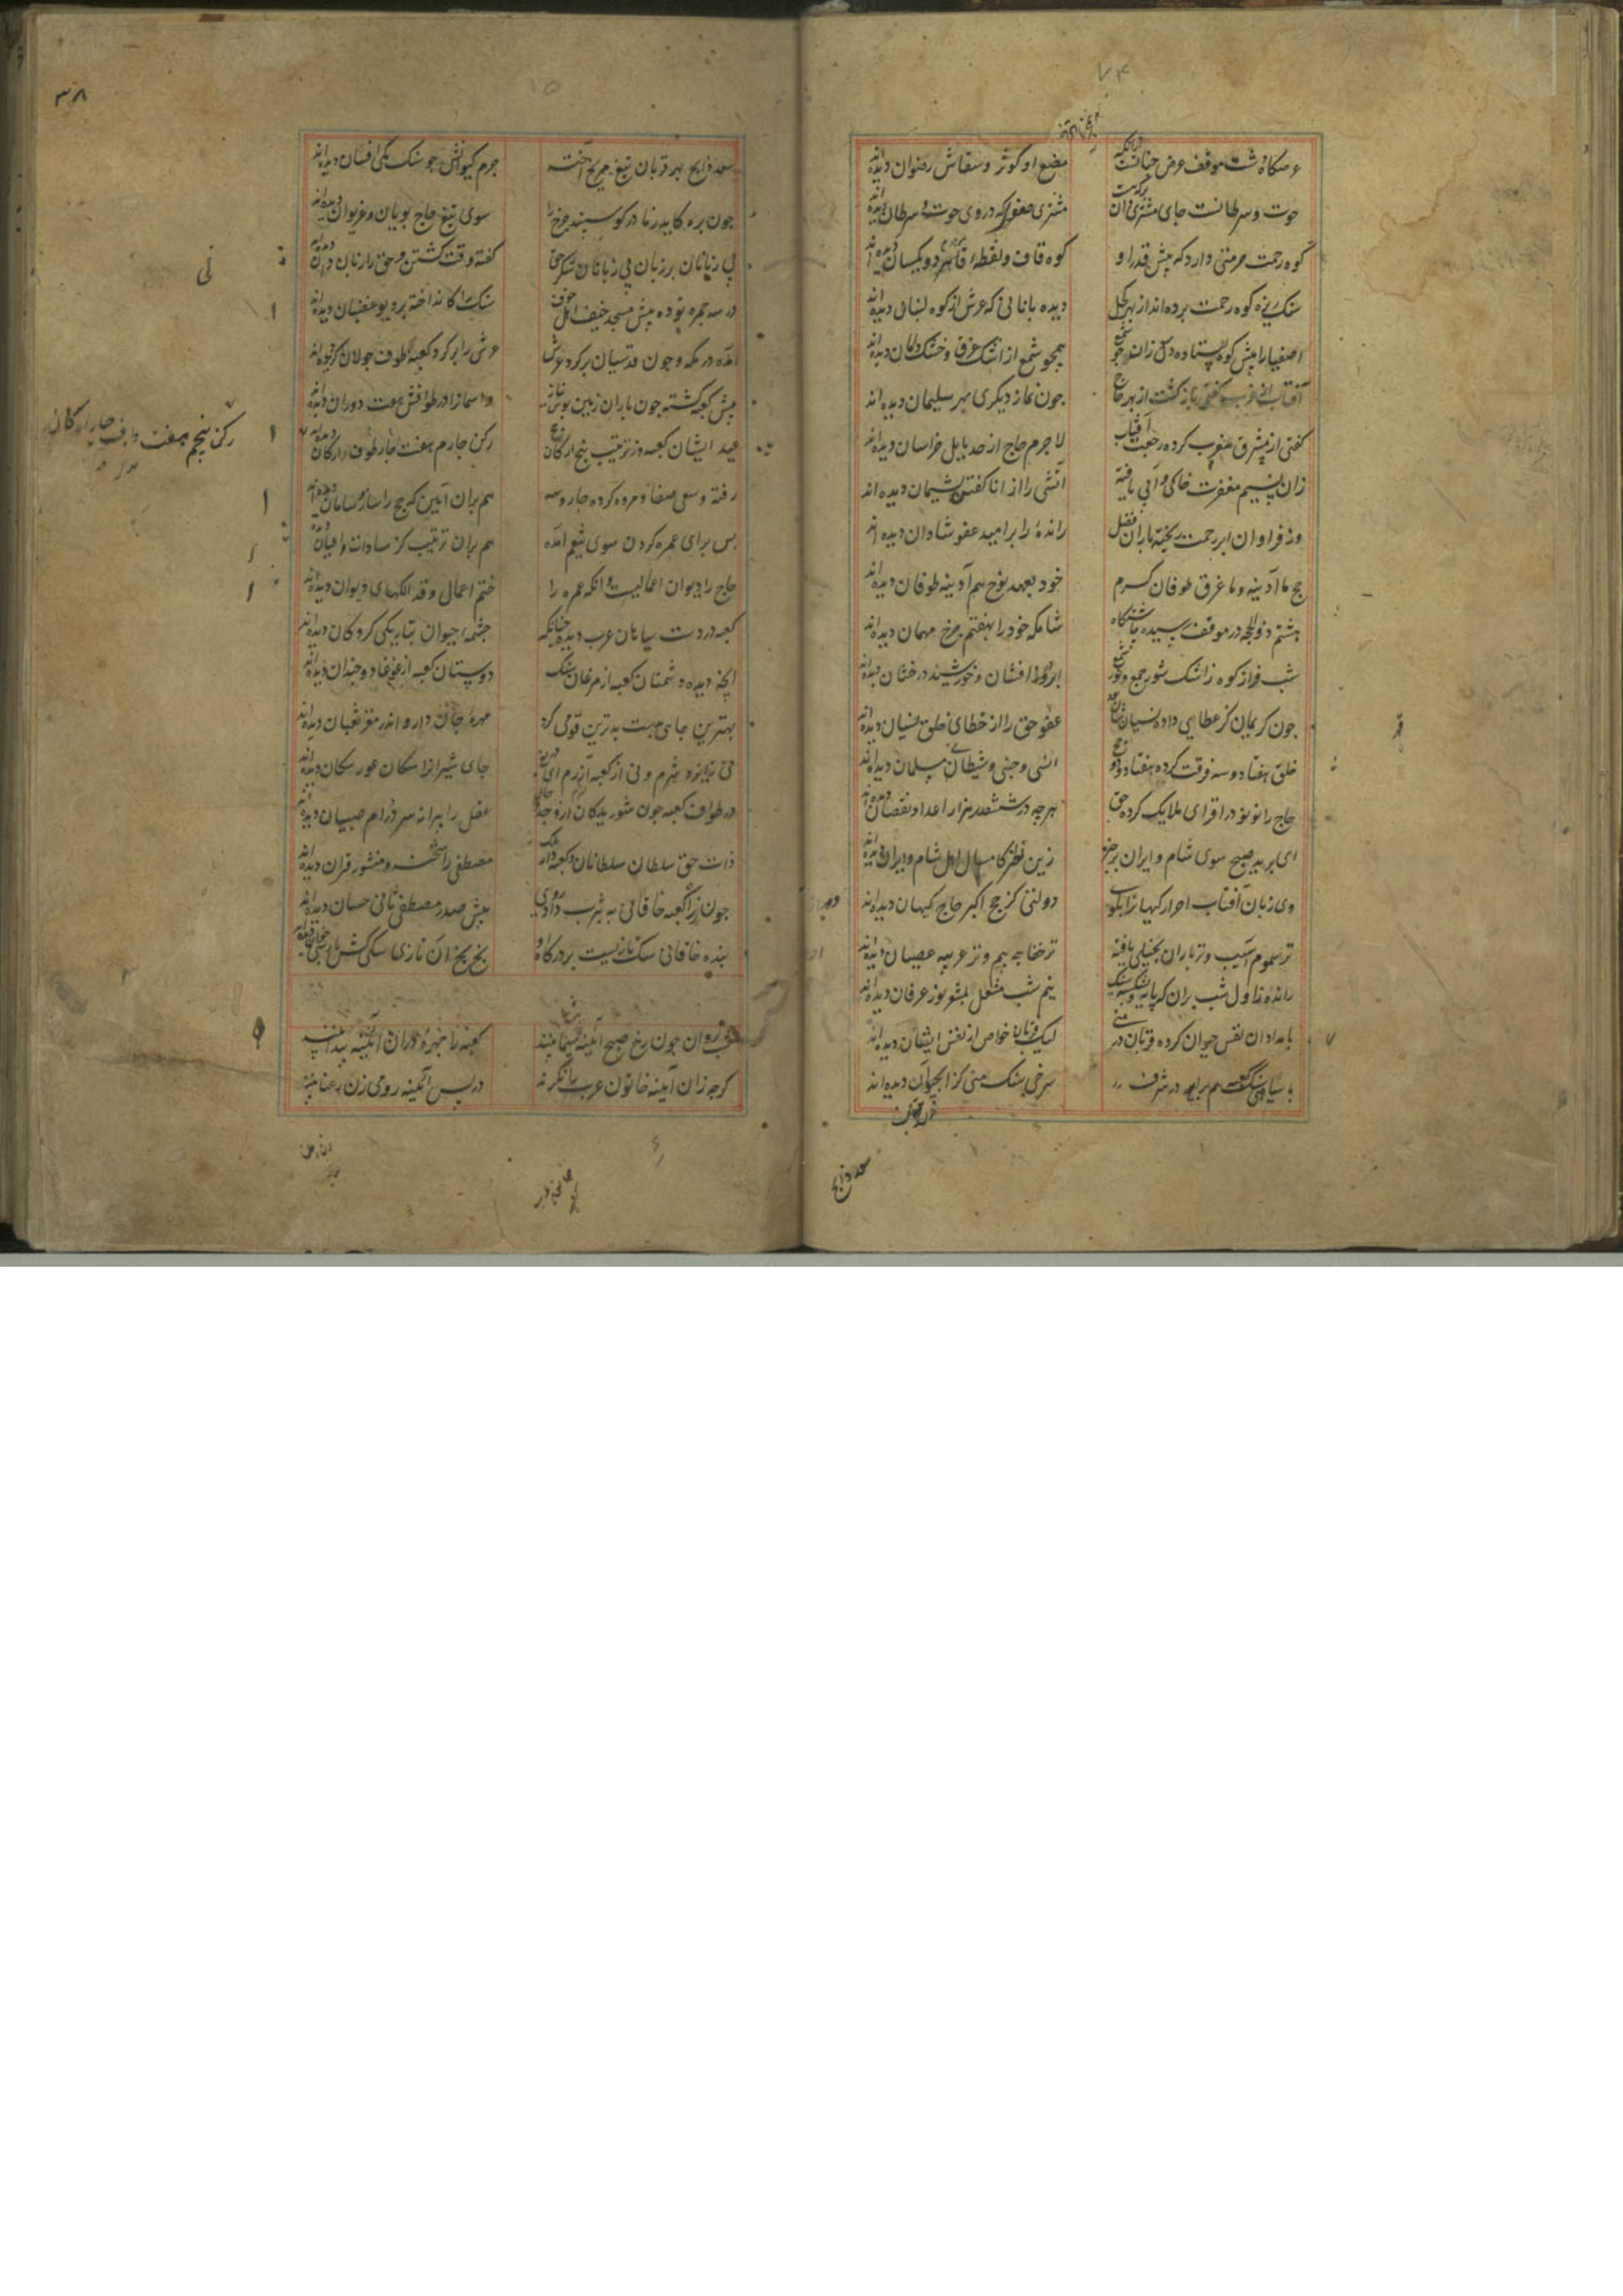 ۷۴
عرصکاه دشت موقف عرض جنات است ازانکه مصنع او کوثر و سقاش رضوان دیده‌اند
حوت و سرطانست جای مشتری وان برکت مشتری صفوت که در وی حوت و سرطان دیده‌اند
کوه رحمت حرمتی دارد که پیش قدر او کوه قاف و نقطهٔ فا هر دو یکسان دیده‌اند
سنک ریزه کوه رحمت برده‌اند از بهر کحل دیده بانانی که عرش از کوه لبنان دیده‌اند
اصفیا را پیش کوه استاده دل زاندوه جو شمع همچو شمع از اشک غرق و خشک دامان دیده‌اند
آفتاب از غرب کفتی بازکشت از بهر حاج چون نماز دیکری بهر سلیمان دیده‌اند
کفتی از مشرق بمغرب کرده رجعت آفتاب لاجرم حاج از حد بابل خراسان دیده‌اند
زان نسیم مغفرت خاکی و آبی یافته آتشی را از انا کفتن پشیمان دیده‌اند
وز فراوان ابر رحمت ریخته باران فضل رانده را بر امید عفو شادان دیده‌اند
حج ما آدینه و ما غرق طوفان کرم خود بعهد نوح هم آدینه طوفان دیده‌اند
هشتم ذوالحجه در موقف رسیده چاشتکاه شامکه خود را بهفتم چرخ مهمان دیده‌اند
شب فراز کوه ز اشک شور جمع و نور شمع ابر در افشان و خورشید درخشان دیده‌اند
چون کریمان کز عطای داده نسیان شان بود عفو حق را از خطای خلق نسیان دیده‌اند
خلق هفتاد و سه فرقت کرده هفتاد و دو حج انسی و جنی و شیطانی مسلمان دیده‌اند
حاج را نو نو در افزای ملایک کرده حق هر چه در ششصد هزار اعداد نقصان دیده‌اند
ای برید صبح سوی شام و ایران بر خبر زین نظر کامسال اهل شام و ایران دیده‌اند
وی زبان آفتاب احرار کیهان را بکو دولتی کز حج اکبر حاج کیهان دیده‌اند
نز سموم آسیب و نز باران بخیلی یافته نز خفاجه بیم و نز غزیه عصیان دیده‌اند
رانده ز اول شب بران که پایه و بشکسته سنک نیم شب مشعل بمشعر نور عرفان دیده‌اند
بامدادان نفس حیوان کرده قربان در منی لیک قربان خواص از نفس ایشان دیده‌اند
با سیاهی سنک کعبه هم برابر در شرف سرخی سنک منی کز خون حیوان دیده‌اند
سعد ذابح
۳۸
سعد ذابح بهر قربان تیغ مریخ آخته جرم کیوانش چو سنک مکی افسان دیده‌اند
چون بره کاید بمادر کوسپند چرخ را سوی تیغ حاج پویان و غریوان دیده‌اند
بی زبانان بر زبان بی زبانان شکر حق کفته وقت کشتن و حق را زبان دان دیده‌اند
در سه جمره بوده پیش مسجد خیف اهل خوف سنک را کانداخته بر دیو غضبان دیده‌اند
آمده در مکه و چون قدسیان بر کرد عرش عرش را بر کرد کعبه طوف جولان کرده‌اند
پیش کعبه کشته چون باران زمین بوس از نیاز و آسمان را در طوافش هفت دوران دیده‌اند
عید ایشان کعبه وز ترتیب پنج ارکان حج رکن چارم هفت طوف چار ارکان دیده‌اند
رفته و سعی صفا و مروه کرده چار و سه هم بران آیین که حج را ساز و سامان دیده‌اند
پس برای عمره کردن سوی تنعیم آمده هم بران ترتیب کز سادات و اعیان دیده‌اند
حاج را دیوان اعمالیست وانکه عمره را ختم اعمال و فذلکهای دیوان دیده‌اند
کعبه در دست سیاهان عرب دیده چنانکه چشمه حیوان بتاریکی کروکان دیده‌اند
آنچه دیده دشمنان کعبه از مرغان بسنک دوستان کعبه از غوغا دو چندان دیده‌اند
بهترین جای بدست بدترین قومی کرو مهرهٔ جان دارو اندر مغز ثعبان دیده‌اند
نی ز ایزد شرم و نی از کعبه آزرم ای دریغ جای شیران را سکان عور سکان دیده‌اند
در طواف کعبه چون شوریدکان از وجد و حال عقل را پیرانه سر در ام صبیان دیده‌اند
ذات حق سلطان سلطانان و کعبه دار ملک مصطفی را شحنه و منشور قران دیده‌اند
چون ز راه کعبه خاقانی به یثرب داد روی پیش صدر مصطفی ثانی حسان دیده‌اند
بنده خاقانی سک تازیست بر درکاه او بخ بخ آن تازی سکی کش پارسی خوان دیده‌اند
شب روان چون رخ صبح آینه سیما بینند کعبه را چهره دران آینه پیدا بینند
کرچه زان آینه خاتون عرب را نکرند در پس آینه رومی زن رعنا بینند
رکن پنجم هفت طوف چار ارکان